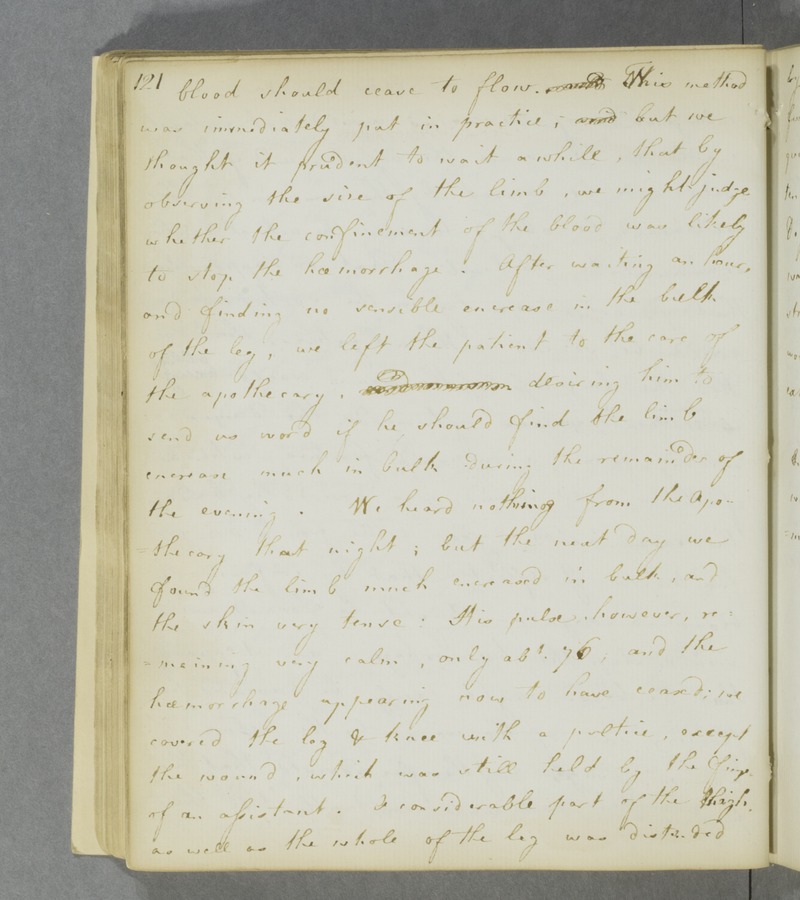 121
blood should cease to flow. This method
was immediately put in practice; but we
thought it prudent to wait a while, that by
observing the size of the limb, we might judge
whether the confinement of the blood was likely
to stop the hœmorrhage. After waiting an hour,
and finding no sensible encrease in the bulk
of the leg, we left the patient to the care of
the apothecary, desiring him to
send us word if he should find the limb
encrease much in bulk during the remainder of
the evening. We heard nothing from the Apo-
=thecary that night; but the next day we
found the limb much encreased in bulk, and
the skin very tense: His pulse however, re=
=maining very calm, only abt. 76; and the
hœmorrhage appearing now to have ceased; we
covered the leg & knee with a poltice, except
the wound, which was still held by the fing
of an assistant. A considerable part of the thigh,
as well as the whole of the leg was distended